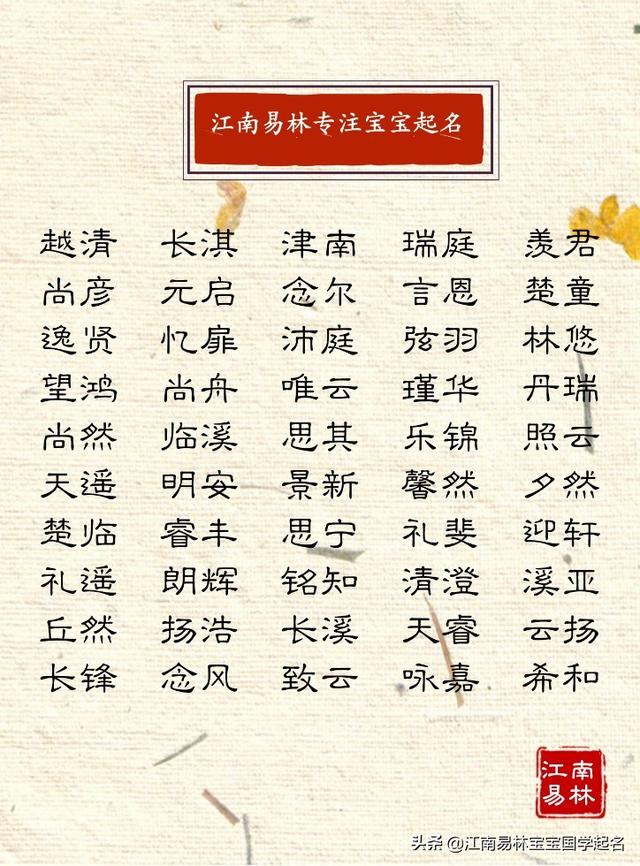 江南易林专注宝宝起名
越清 长淇 津南 瑞庭 羡君
尚彦 元启 念尔 言恩 楚童
逸贤 忆扉 沛庭 弦羽 林悠
望鸿 尚舟 唯云 瑾华 丹瑞
尚然 临溪 思其 乐锦 照云
天遥 明安 景新 馨然 夕然
楚临 睿丰 思宁 礼斐 迎轩
礼遥 朗辉 铭知 清澄 溪亚
丘然 扬浩 长溪 天睿 云扬
长锋 念风 致云 咏嘉 希和
江南
易林
头条 @江南易林宝宝国学起名